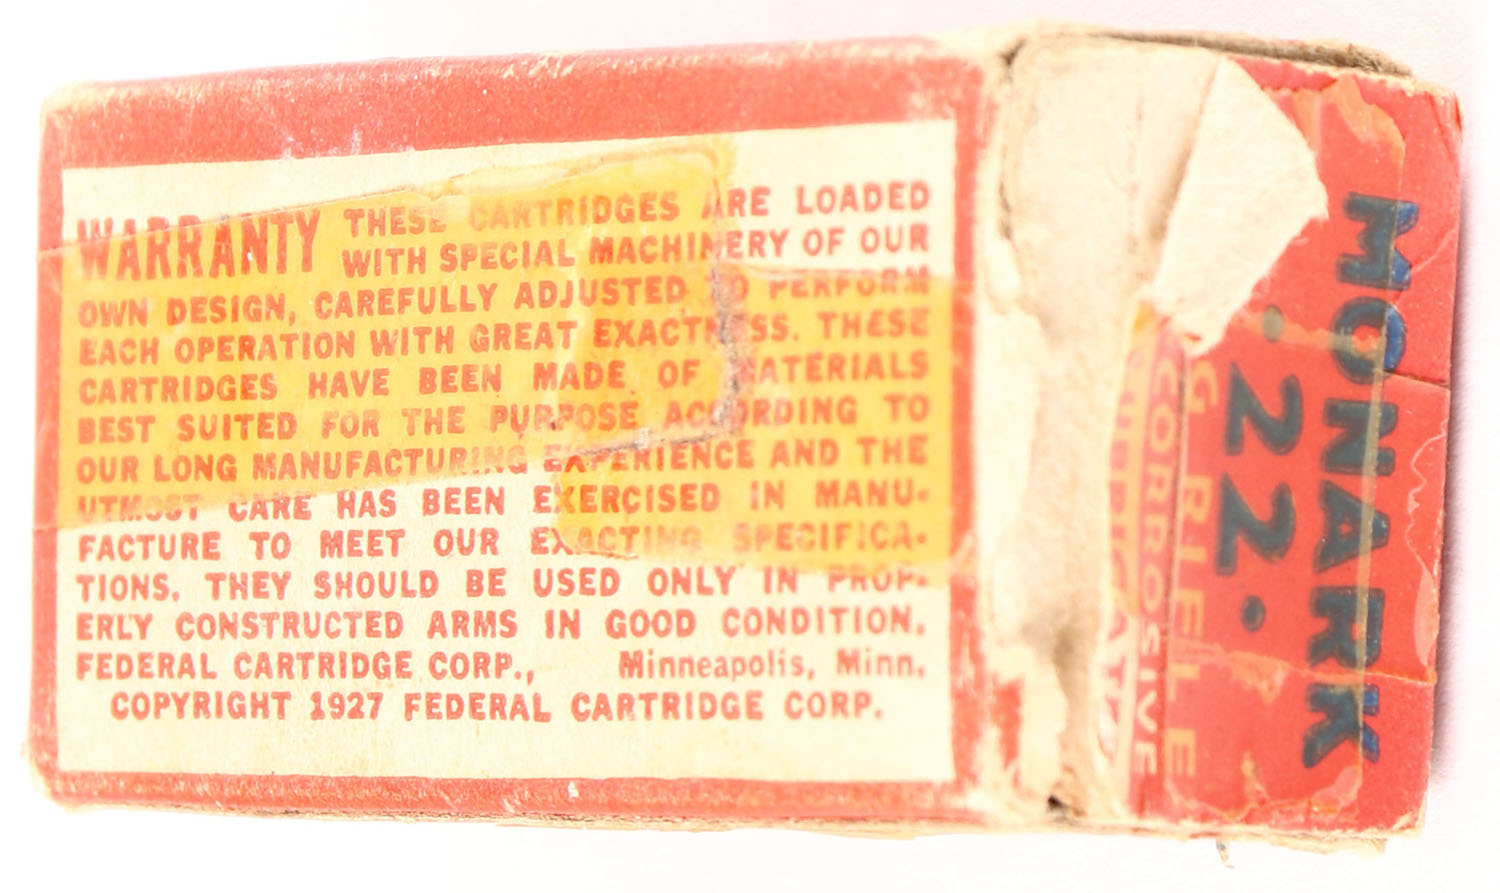 WARRANTY THESE CARTRIDGES ARE LOADED
WITH SPECIAL MACHINERY OF OUR
OWN DESIGN, CAREFULLY ADJUSTED TO PERFORM
EACH OPERATION WITH GREAT EXACTNESS. THESE
CARTRIDGES HAVE BEEN MADE OF MATERIALS
BEST SUITED FOR THE PURPOSE ACCORDING TO
OUR LONG MANUFACTURING EXPERIENCE AND THE
UTMOST CARE HAS BEEN EXERCISED IN MANU-
FACTURE TO MEET OUR EXACTING SPECIFICA-
TIONS. THEY SHOULD BE USED ONLY IN PROP-
ERLY CONSTRUCTED ARMS IN GOOD CONDITION.
FEDERAL CARTRIDGE CORP., Minneapolis, Minn.
COPYRIGHT 1927 FEDERAL CARTRIDGE CORP.
MONARK
.22.
G RIFLE
CORROSIVE